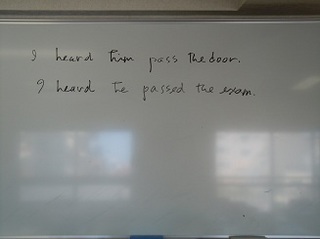 I heard him pass the door.
I heard he passed the exam.